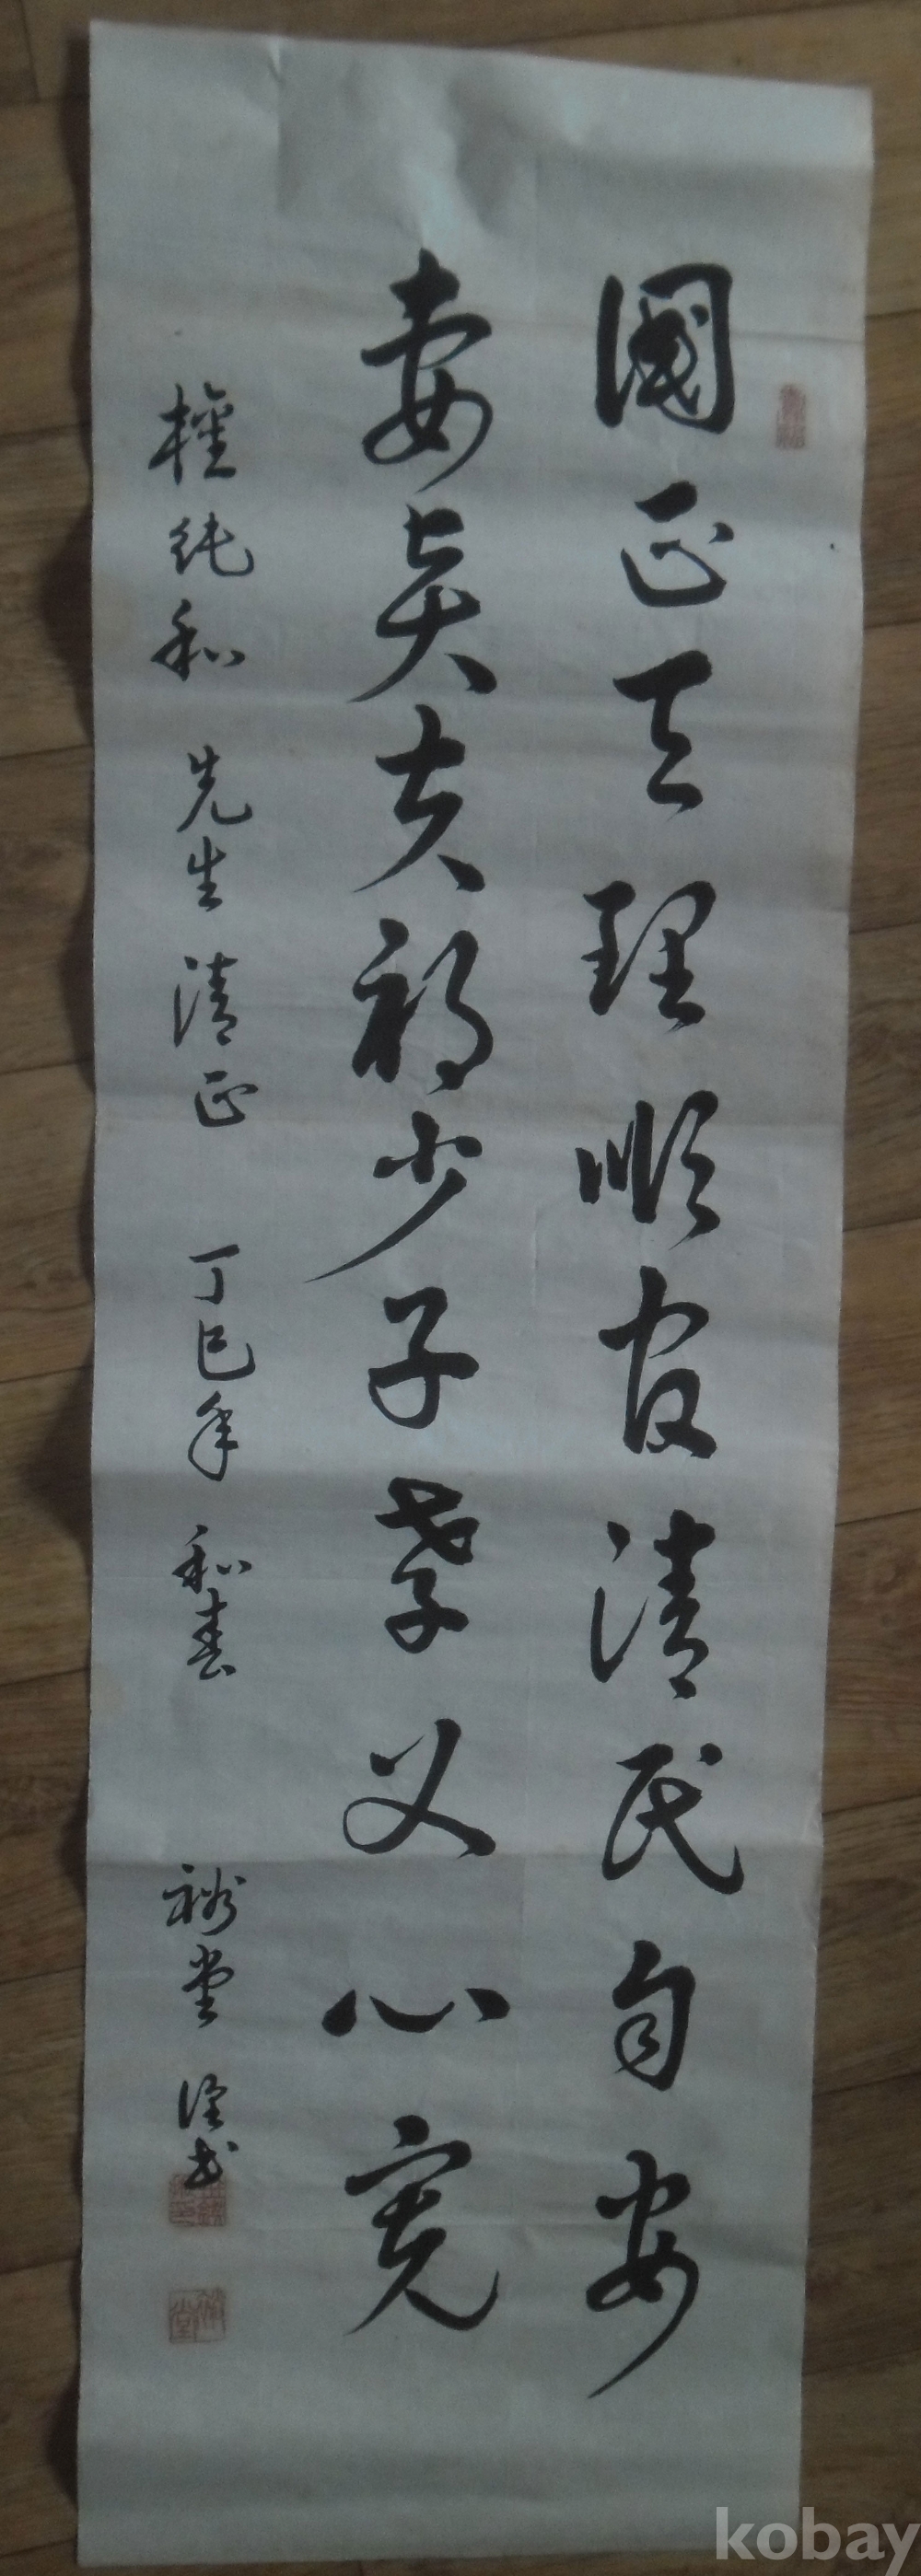 國正天理順官清民自安
妻賢夫禍少子孝父心寬
權純和 先生 清正 丁巳年 和春 裕堂 書
kobay